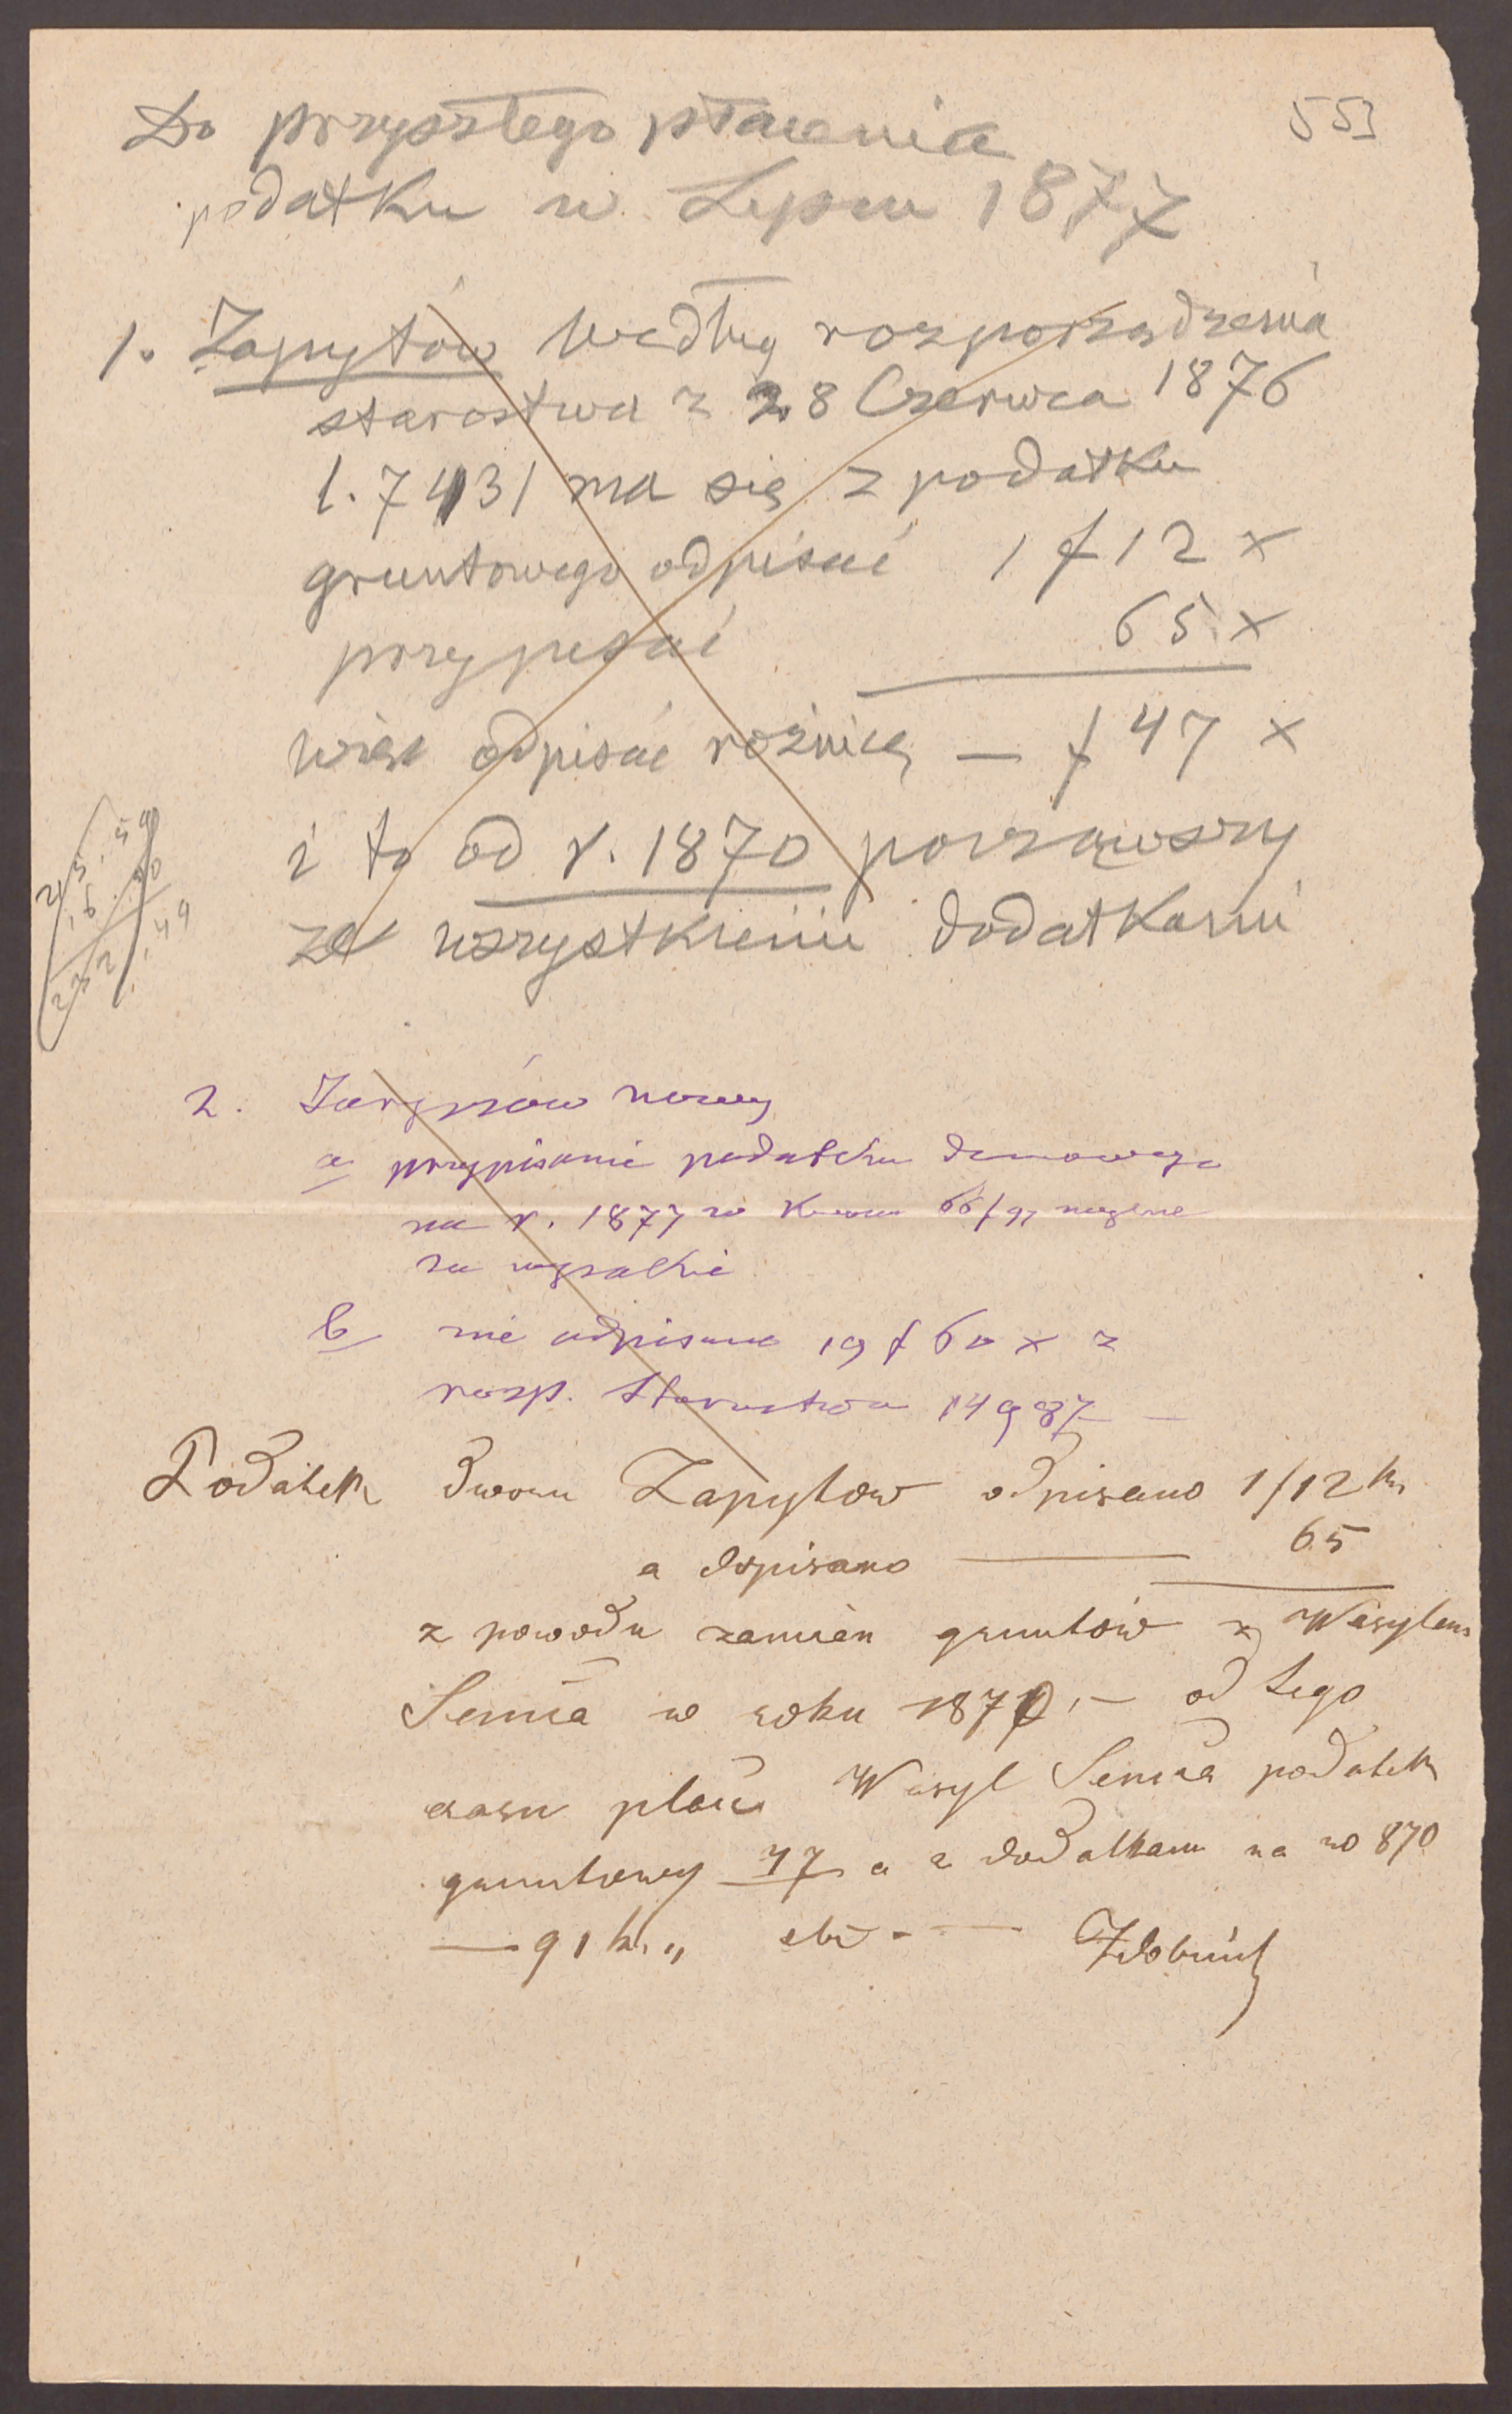 553
Do przyszłego płacenia
podatku w Lipcu 1877
1. Zapytów według rozporządzenia
starostwa z 28 Czerwca 1876
l. 7431 ma się z podatku
gruntowego odpisać 1 f 12 x
przypisać 65 x
więc odpisać rożnicę — f 47 x
i to od r. 1870 począwszy
ze wszystkiemi dodatkami
2. nowy
a przypisanie podatku domowego
na r. 1877 w
za wysokie
b nie odpisano 19 f 60 x z
rozp. Starostwa 14987 —
Podatek dworu Zapytow odpisano 1 f 12 kr
a dopisano — 65
z powodu zamian gruntów z Wasylem
Senuia w roku 1870, — od tego
czasu płaci Wasyl Senuia podatek
gruntowy 47 a z dodatkami na ro 870
— 91 kr. „ etc —